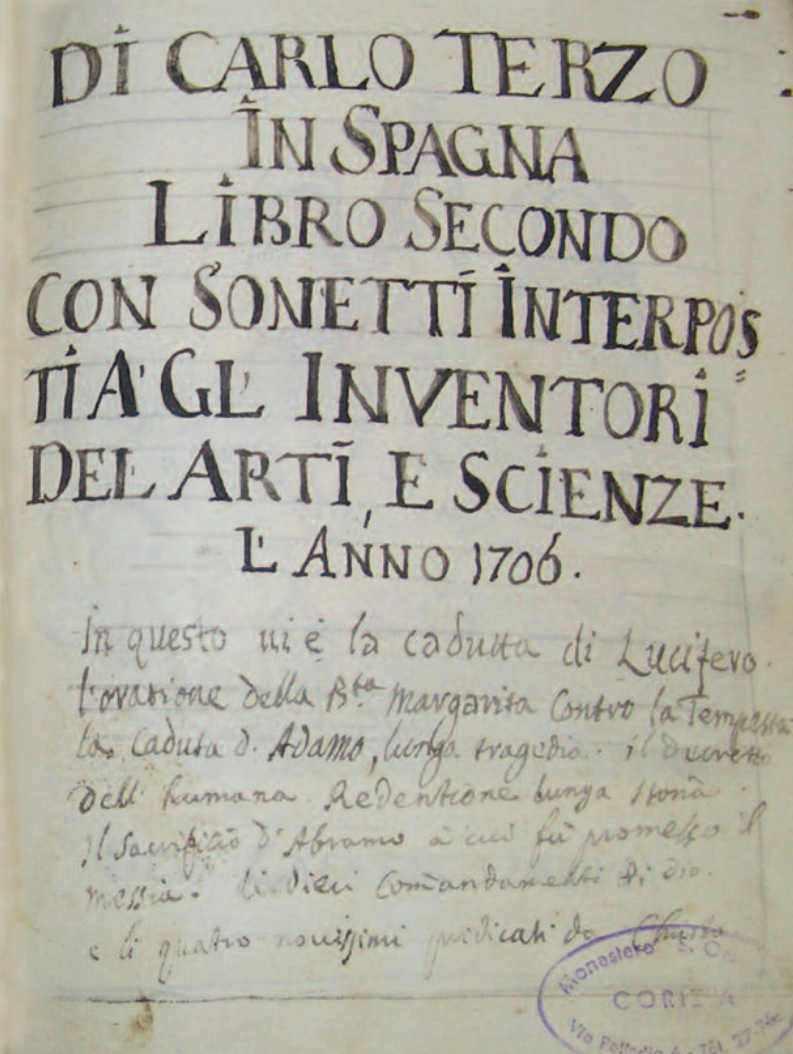 DI CARLO TERZO
IN SPAGNA
LIBRO SECONDO
CON SONETTI INTERPOS
TI A' GL' INVENTORI
DEL ARTI, E SCIENZE.
L' ANNO 1706.
In questo ui è la caduta di Lucifero.
l'oratione della B.ta Margarita Contro la Tempesta
la Caduta d. Adamo, lunga tragedia. il decreto
dell' humana Redentione lunga storia.
Il Sacrificio d'Abramo à cui fù promesso il
messia. li dieci Comandamenti di dio.
e li quatro nouissimi predicati da Christo
Monastero S.
GORIZIA
Via